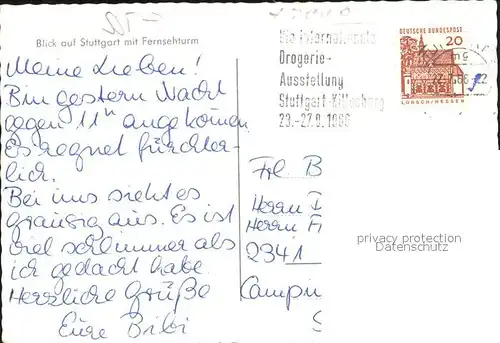 Blick auf Stuttgart mit Fernsehturm
Meine Lieben!
Bin gestern Nacht
gegen 11h angekomen
Es regnet fürchter-
lich.
Bei uns sieht es
grausig aus. Es ist
viel schlimmer als
ich gedacht habe.
Herzliche Grüße
Eure Bibi
Die internationale
Drogerie-
Ausstellung
Stuttgart-Killesberg
23.-27.8.1966
DEUTSCHE BUNDESPOST
20
LORSCH/HESSEN
Frl. B
Herrn
Herrn
2341
Campin
privacy protection
Datenschutz